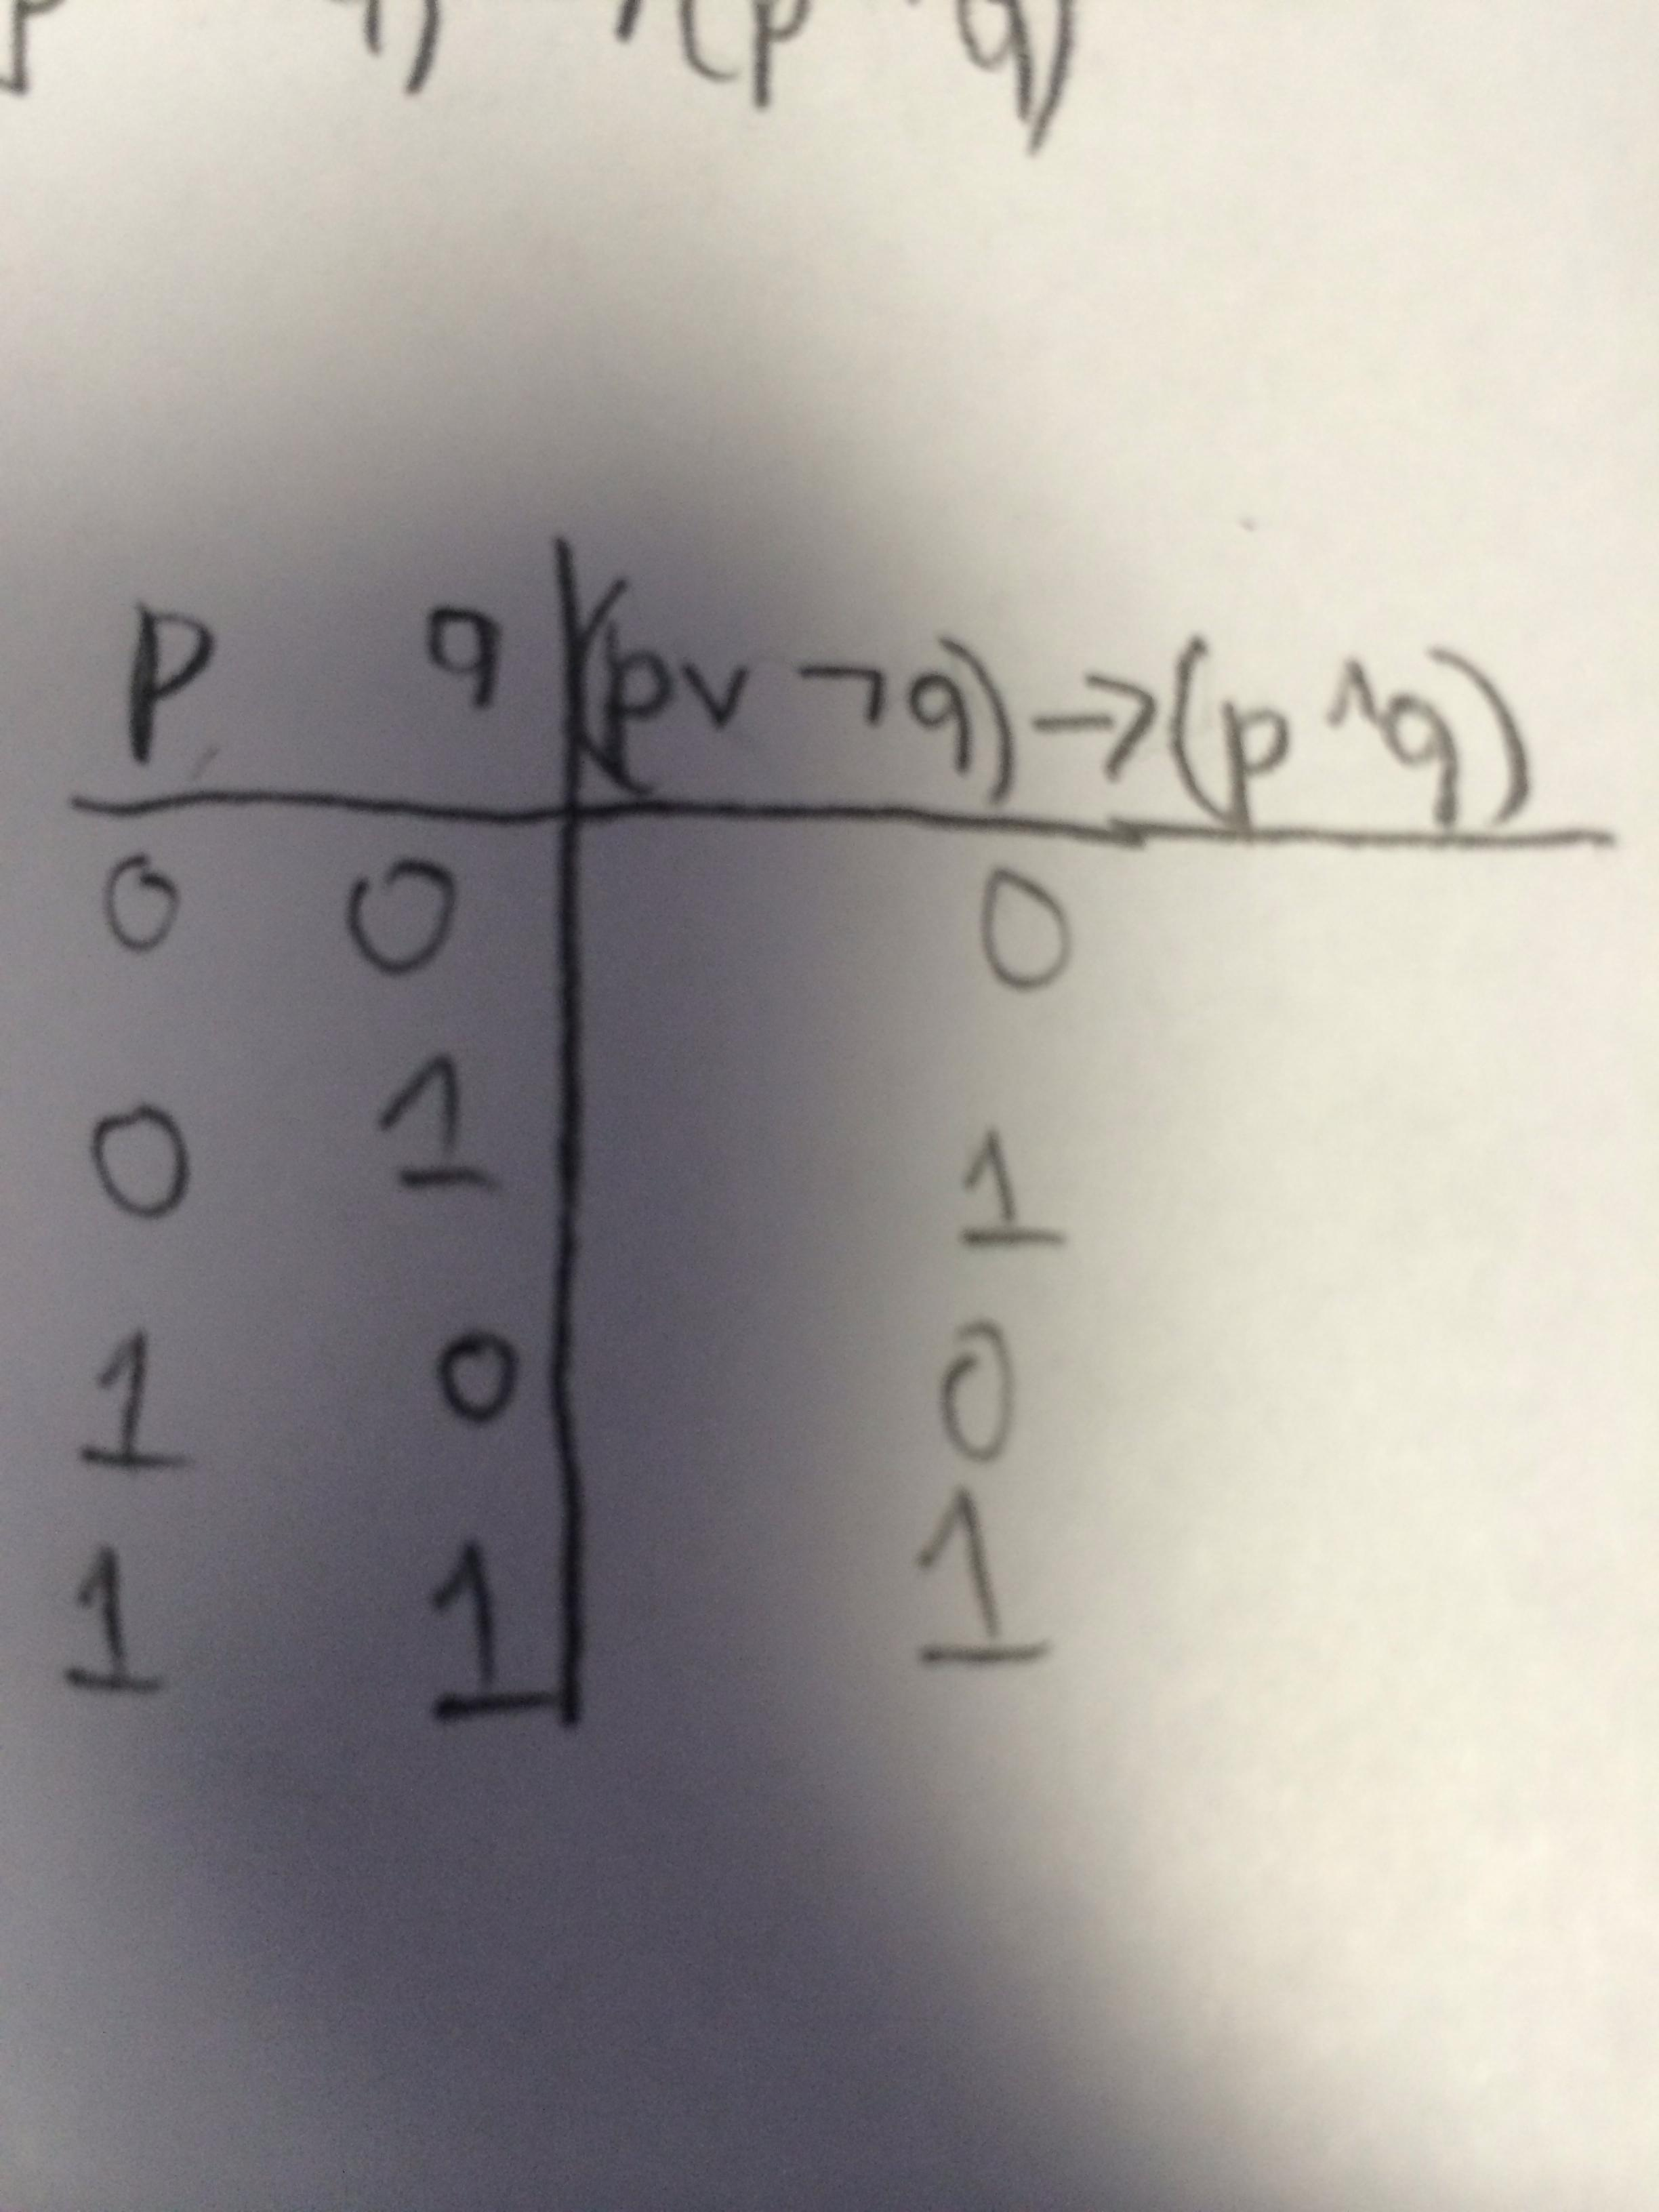 (p q)
p q (pv ¬q)→(p ^q)
0 0 0
0 1 1
1 0 0
1 1 1